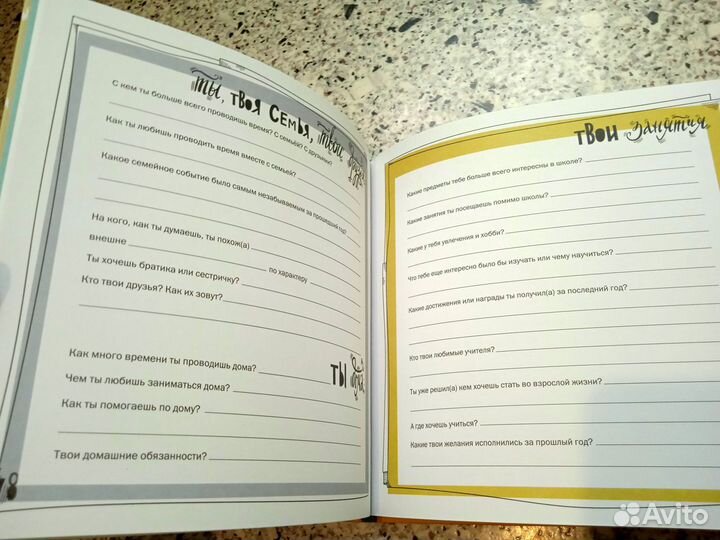 ты, твоя семья, твои друзья
С кем ты больше всего проводишь время? С семьей? С друзьями?
Как ты любишь проводить время вместе с семьей?
Какое семейное событие было самым незабываемым за прошедший год?
На кого, как ты думаешь, ты похож(а)
внешне по характеру
Ты хочешь братика или сестричку?
Кто твои друзья? Как их зовут?
ты дома
Как много времени ты проводишь дома?
Чем ты любишь заниматься дома?
Как ты помогаешь по дому?
Твои домашние обязанности?
48
твои занятия
Какие предметы тебе больше всего интересны в школе?
Какие занятия ты посещаешь помимо школы?
Какие у тебя увлечения и хобби?
Что тебе еще интересно было бы изучать или чему научиться?
Какие достижения или награды ты получил(а) за последний год?
Кто твои любимые учителя?
Ты уже решил(а) кем хочешь стать во взрослой жизни?
А где хочешь учиться?
Какие твои желания исполнились за прошлый год?
Avito